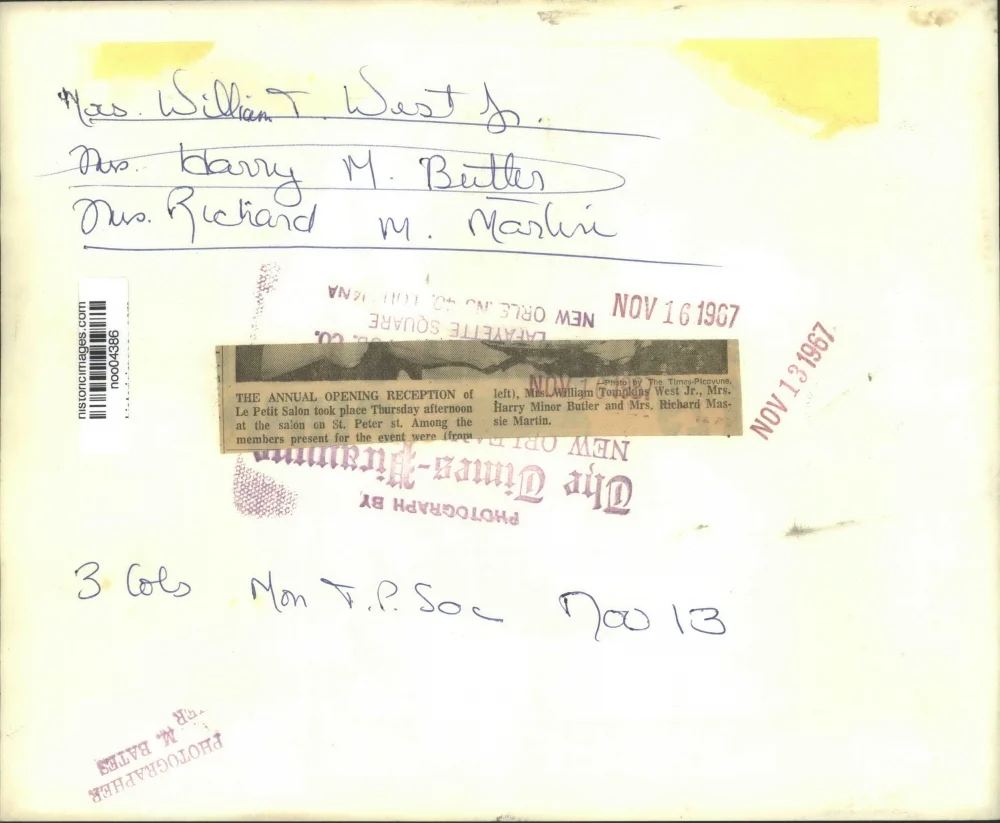 Mrs. William T. West Jr.
Mrs. Harry M. Butler
Mrs. Richard M. Martin
historicimages.com
noo04386
NEW ORLEANS 40, LOUISIANA
LAFAYETTE SQUARE
CO.
NOV 16 1967
NOV 13 1967
Photo by The Times-Picayune.
THE ANNUAL OPENING RECEPTION of
Le Petit Salon took place Thursday afternoon
at the salon on St. Peter st. Among the
members present for the event were (from
left), Mrs. William Tompkins West Jr., Mrs.
Harry Minor Butler and Mrs. Richard Mas-
sie Martin.
NEW ORLEANS
The Times-Picayune
PHOTOGRAPH BY
3 Cols Mon T.P. Soc Nov 13
PHOTOGRAPHER
M. BATES